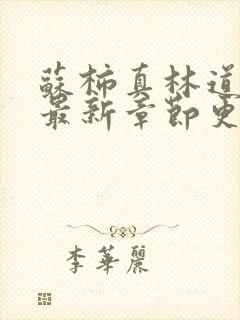 蘇柿真林道
最新章節更
李華麗